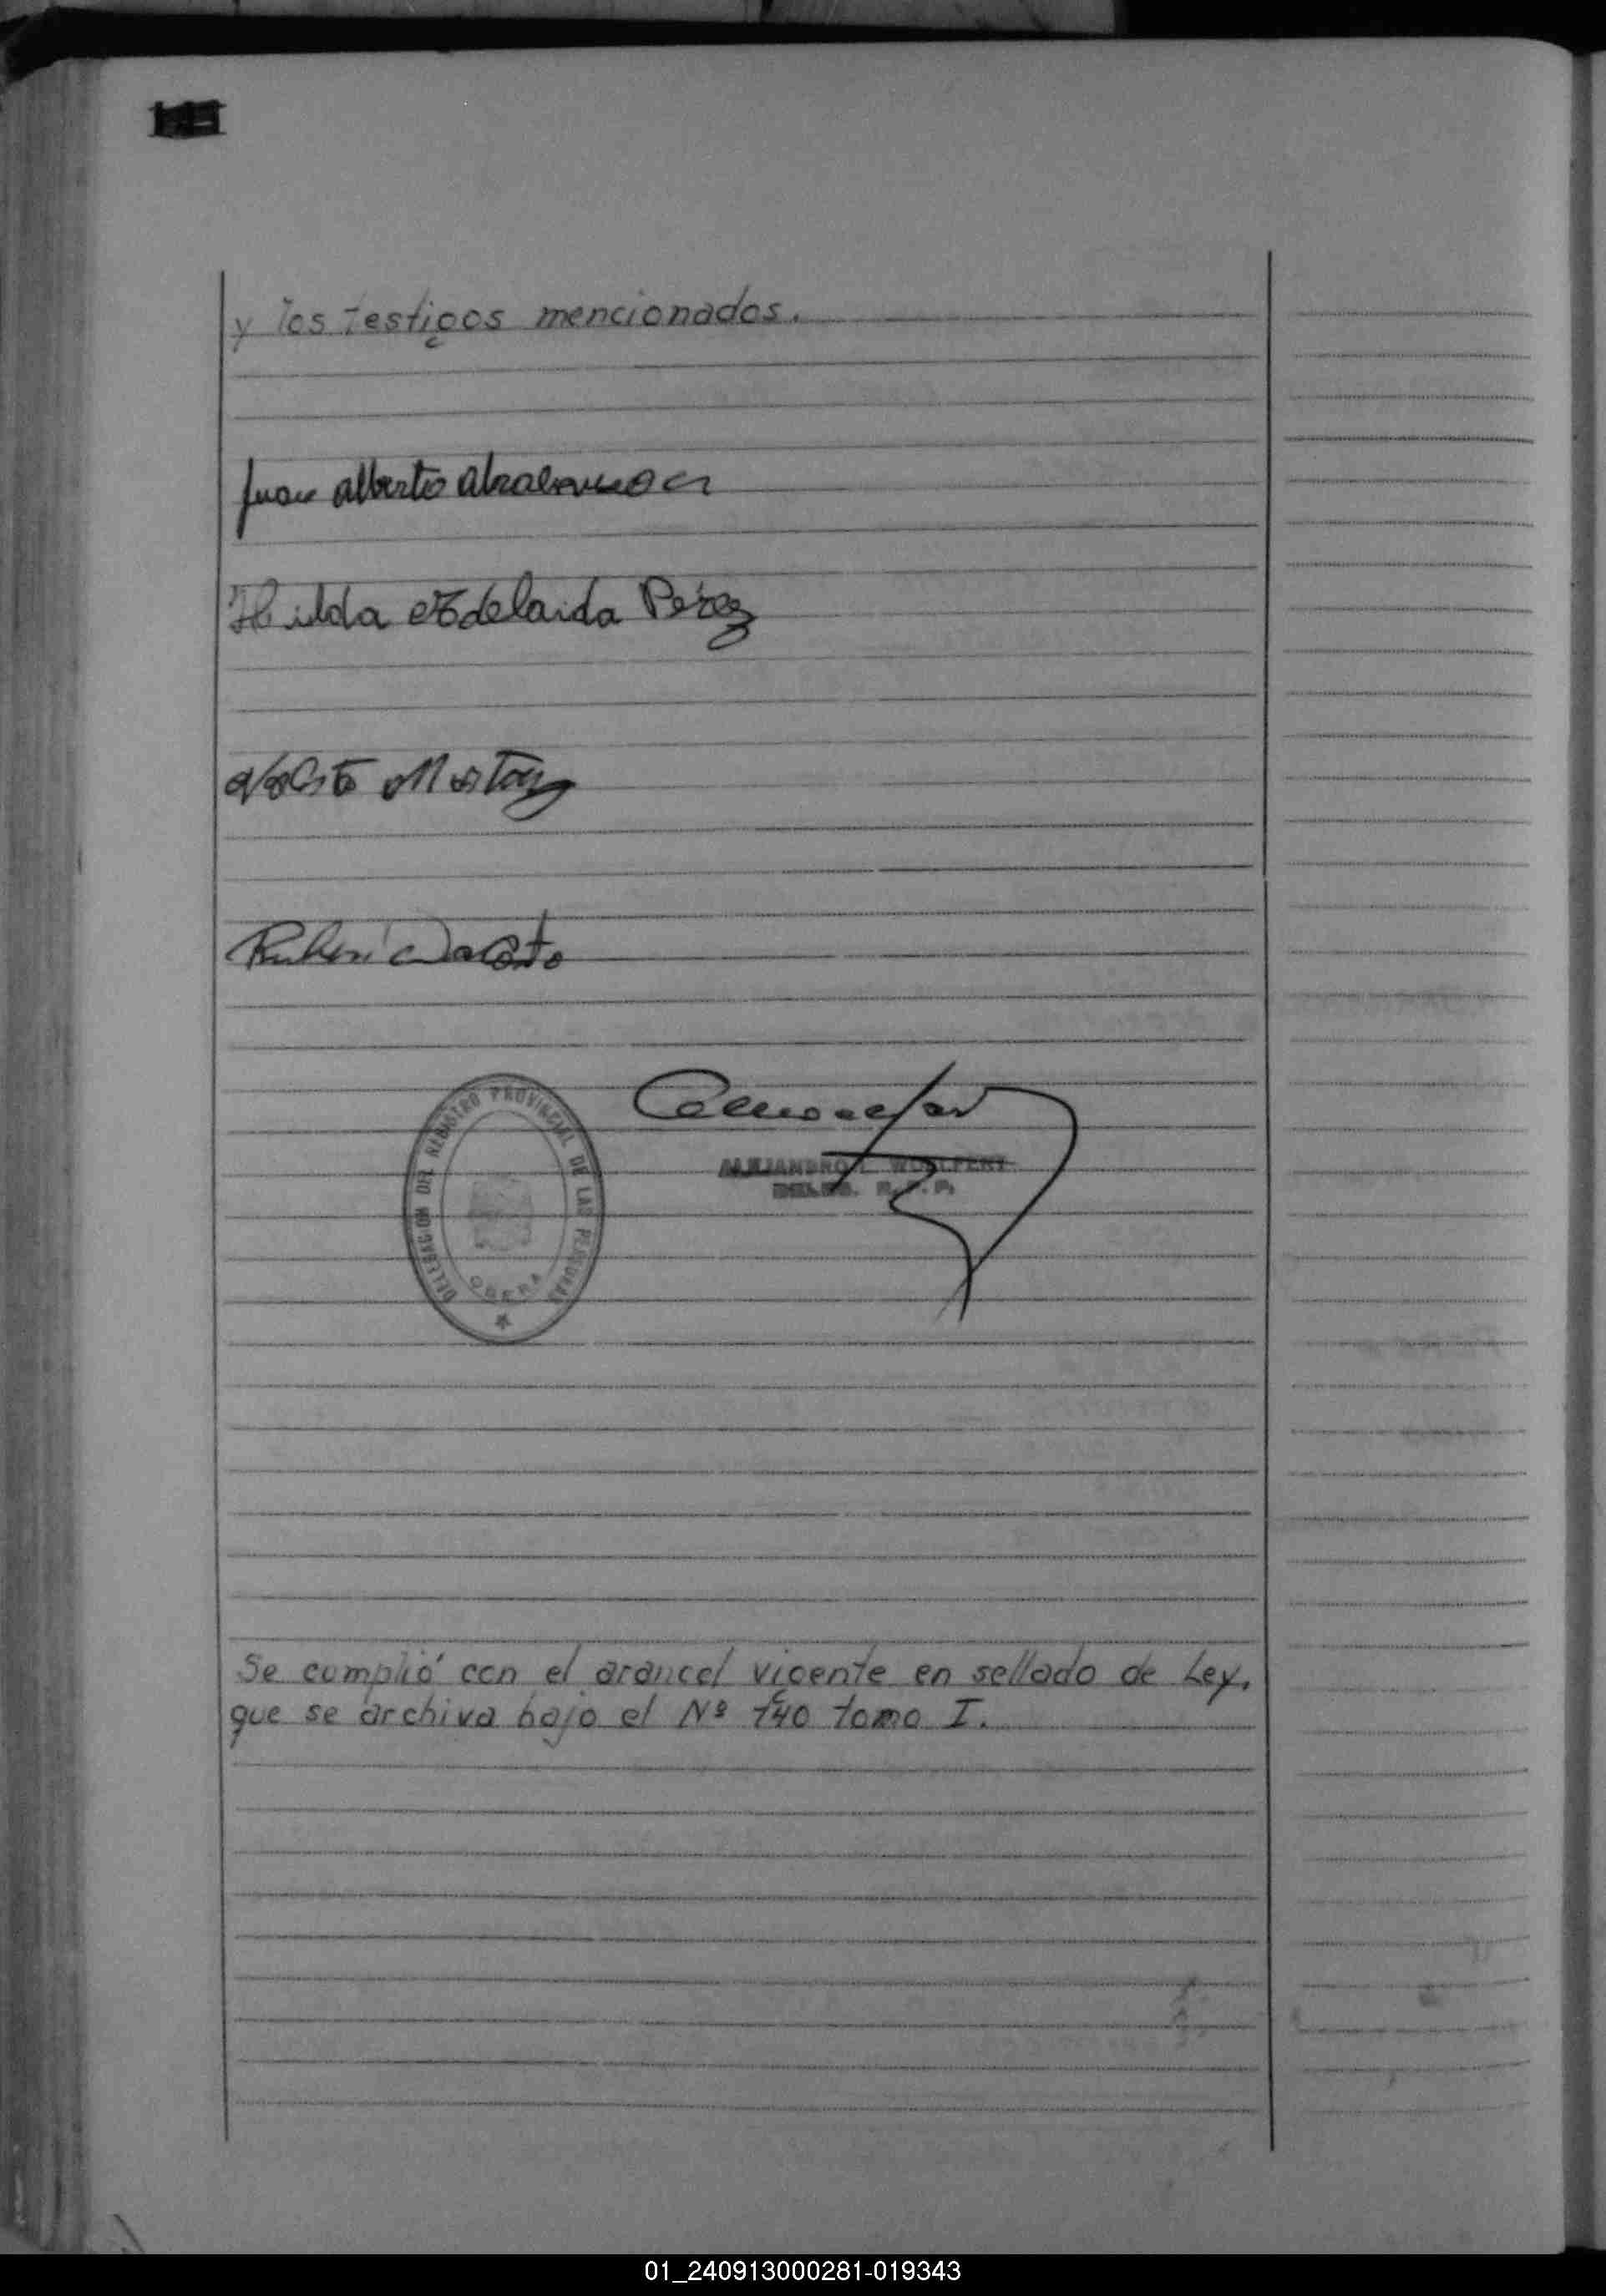 y los testigos mencionados.
Juan Alberto
Hilda Adelaida Pérez
Rubén
DELEGACION DEL REGISTRO PROVINCIAL DE LAS PERSONAS
OBERA
ALEJANDRO
DELEG. R. P. P.
Se cumplió con el arancel vigente en sellado de Ley,
que se archiva bajo el Nº 140 tomo I.
01_240913000281-019343